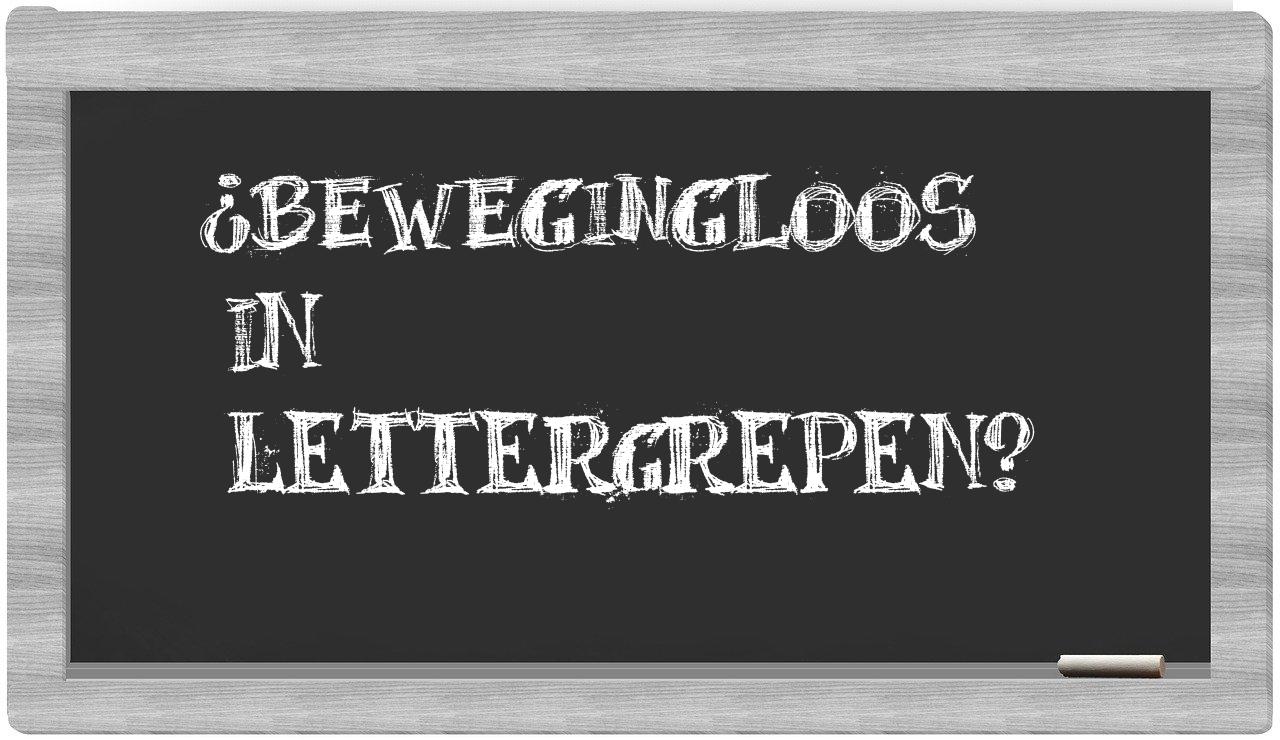 ¿BEWEGINGLOOS
IN
LETTERGREPEN?